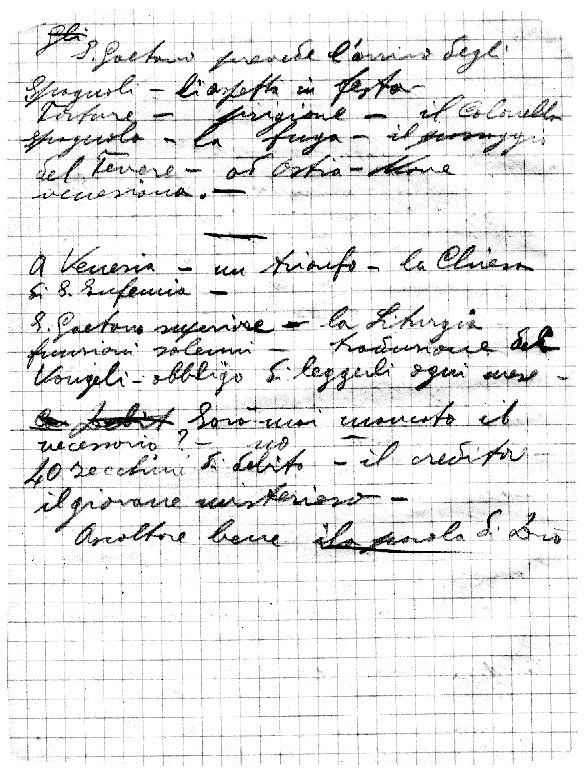 Gli
S. Gaetano prevede l'arrivo degli
Spagnoli - li aspetta in festa
Torture - prigione - il Colonello
spagnolo - la fuga - il passaggio
del Tevere - ad Ostia - Nave
veneziana. -
A Venezia - un trionfo - la Chiesa
di S. Eufemia -
S. Gaetano superiore - la Liturgia
funzioni solenni - traduzione del
Vangeli - obbligo di leggerli ogni mese -
debit Sarà mai mancato il
necessario? - no
40 zecchini di debito - il creditor
il giovane misterioso -
Ascoltare bene la parola di Dio